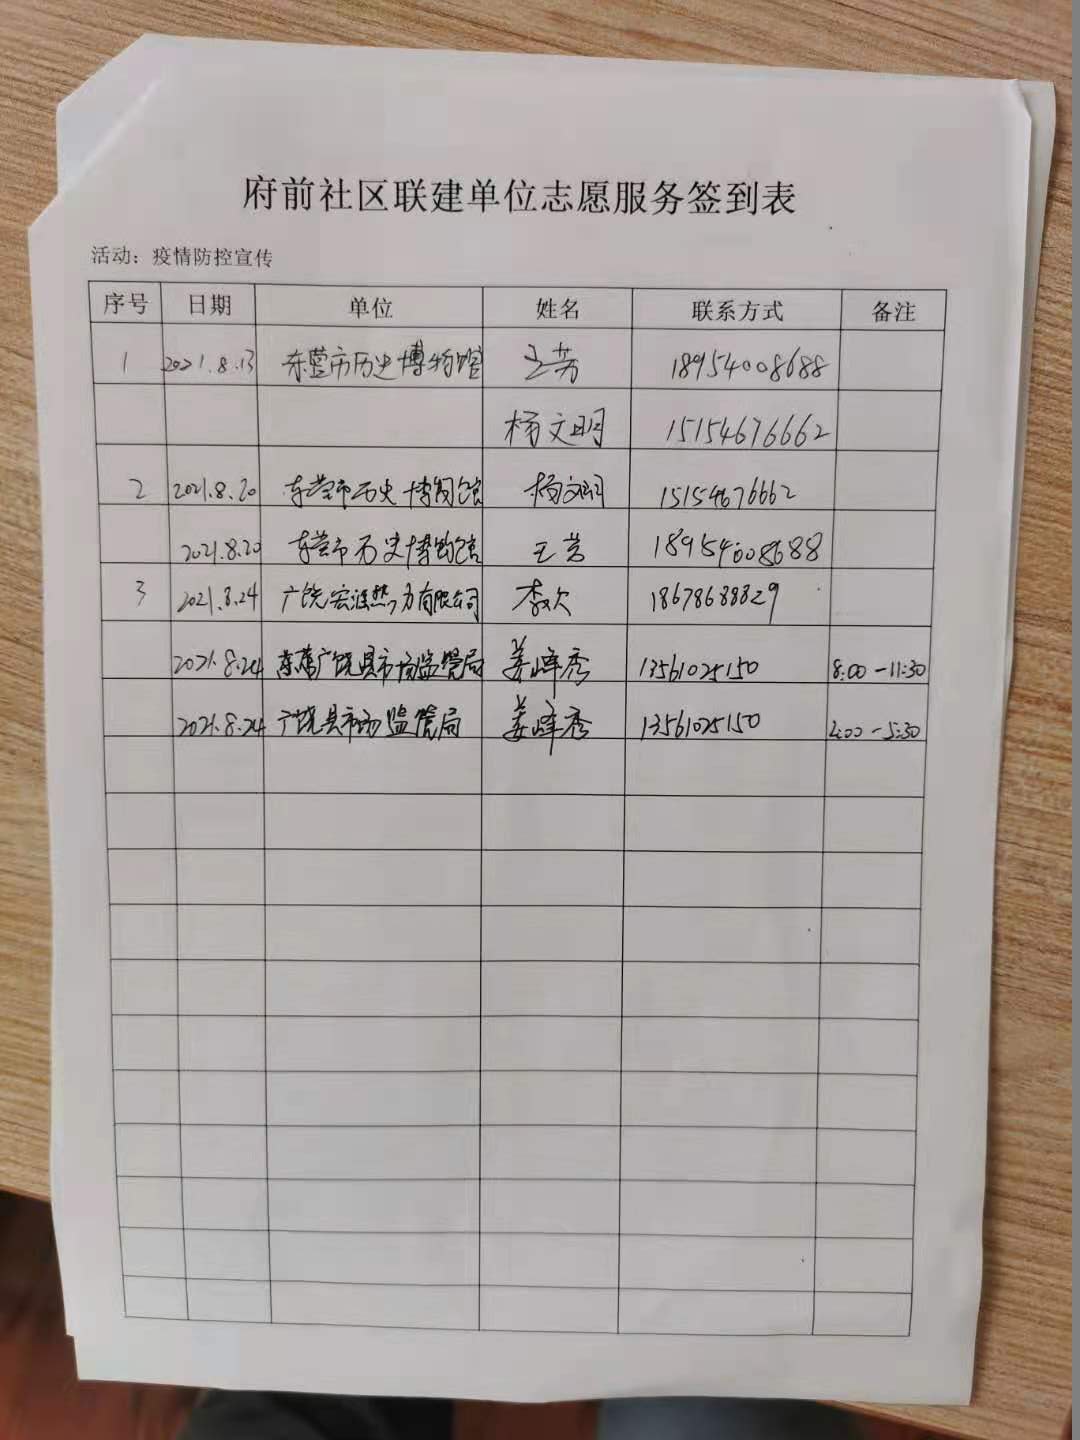 府前社区联建单位志愿服务签到表
活动：疫情防控宣传
序号 日期 单位 姓名 联系方式 备注
1 2021.8.13 东营市历史博物馆 王芳 18954008688
杨文明 15154676662
2 2021.8.20 东营市历史博物馆 杨文明 15154676662
2021.8.20 东营市历史博物馆 王芳 18954008688
3 2021.8.24 广饶宏源热力有限公司 李欠 18678688829
2021.8.24 广饶县市场监管局 姜峰秀 13561025150 8:00-11:30
2021.8.24 广饶县市场监管局 姜峰秀 13561025150 2:00-5:30